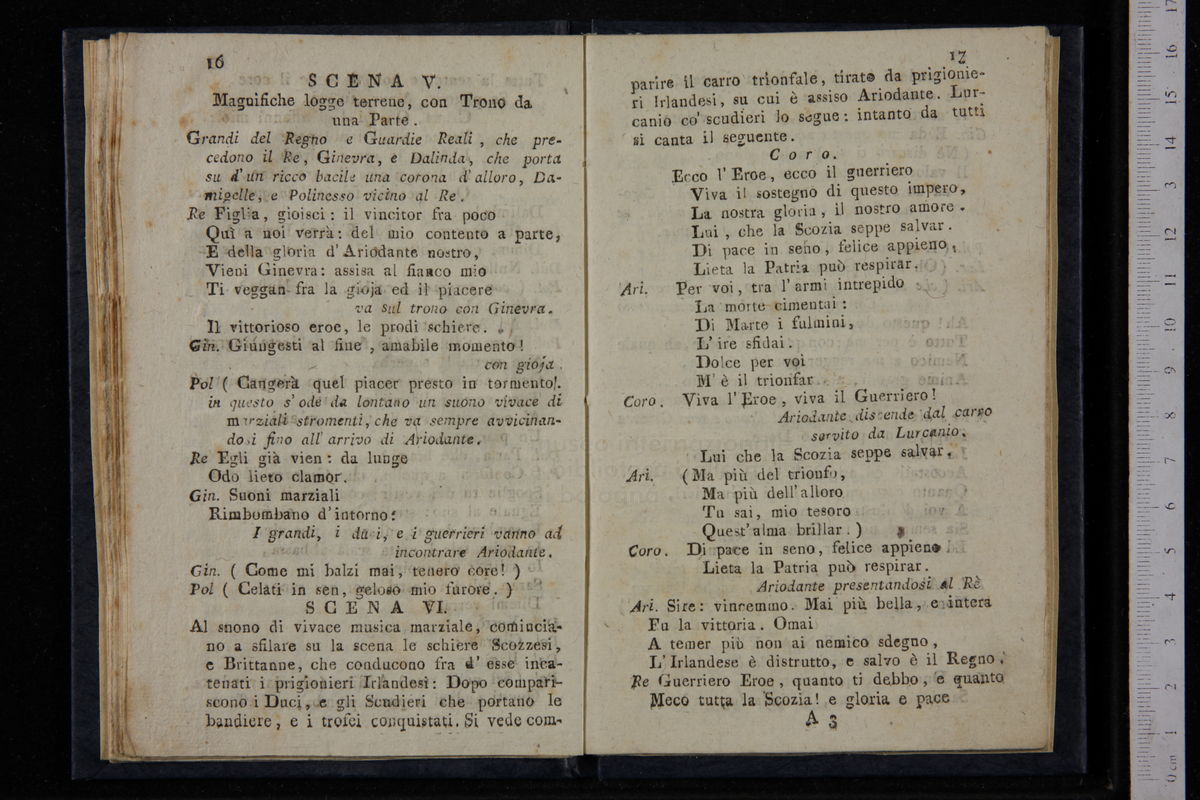 16
SCENA V.
Magnifiche logge terrene, con Trono da
una Parte.
Grandi del Regno e Guardie Reali, che pre-
cedono il Re, Ginevra, e Dalinda, che porta
su d'un ricco bacile una corona d'alloro, Da-
migelle, e Polinesso vicino al Re.
Re Figlia, gioisci: il vincitor fra poco
Quì a noi verrà: del mio contento a parte,
E della gloria d'Ariodante nostro,
Vieni Ginevra: assisa al fianco mio
Ti veggan fra la gioja ed il piacere
va sul trono con Ginevra.
Il vittorioso eroe, le prodi schiere.
Gin. Giungesti al fine, amabile momento!
con gioja.
Pol (Cangerà quel piacer presto in tormento).
in questo s'ode da lontano un suono vivace di
marziali stromenti, che va sempre avvicinan-
dosi fino all'arrivo di Ariodante.
Re Egli già vien: da lunge
Odo lieto clamor.
Gin. Suoni marziali
Rimbombano d'intorno:
I grandi, i duci, e i guerrieri vanno ad
incontrare Ariodante.
Gin. (Come mi balzi mai, tenero core!)
Pol (Celati in sen, geloso mio furore.)
SCENA VI.
Al snono di vivace musica marziale, comincia-
no a sfilare su la scena le schiere Scozzesi,
e Brittanne, che conducono fra d'esse inca-
tenati i prigionieri Irlandesi: Dopo compari-
scono i Duci, e gli Scudieri che portano le
bandiere, e i trofei conquistati. Si vede com-
17
parire il carro trionfale, tirato da prigionie-
ri Irlandesi, su cui è assiso Ariodante. Lur-
canio co' scudieri lo segue: intanto da tutti
si canta il seguente.
Coro.
Ecco l'Eroe, ecco il guerriero
Viva il sostegno di questo impero,
La nostra gloria, il nostro amore.
Lui, che la Scozia seppe salvar.
Di pace in seno, felice appieno,
Lieta la Patria può respirar.
Ari. Per voi, tra l'armi intrepido
La morte cimentai:
Di Marte i fulmini,
L'ire sfidai.
Dolce per voi
M'è il trionfar
Coro. Viva l'Eroe, viva il Guerriero!
Ariodante discende dal carro
servito da Lurcanio.
Lui che la Scozia seppe salvar.
Ari. (Ma più del trionfo,
Ma più dell'alloro
Tu sai, mio tesoro
Quest'alma brillar.)
Coro. Di pace in seno, felice appieno
Lieta la Patria può respirar.
Ariodante presentandosi al Rè
Ari. Sire: vincemmo. Mai più bella, e intera
Fu la vittoria. Omai
A temer più non ai nemico sdegno,
L'Irlandese è distrutto, e salvo è il Regno.
Re Guerriero Eroe, quanto ti debbo, e quanto
Meco tutta la Scozia! e gloria e pace
A 3